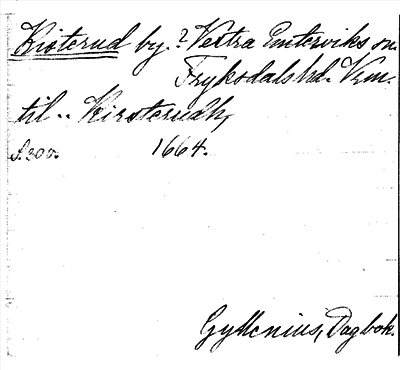 Kisterud by. ? Vestra Emterviks sn.
Fryksdals hd. Vrm.
til .. Kirsterudh,
s. 300. 1664.
Gyllenius, Dagbok.